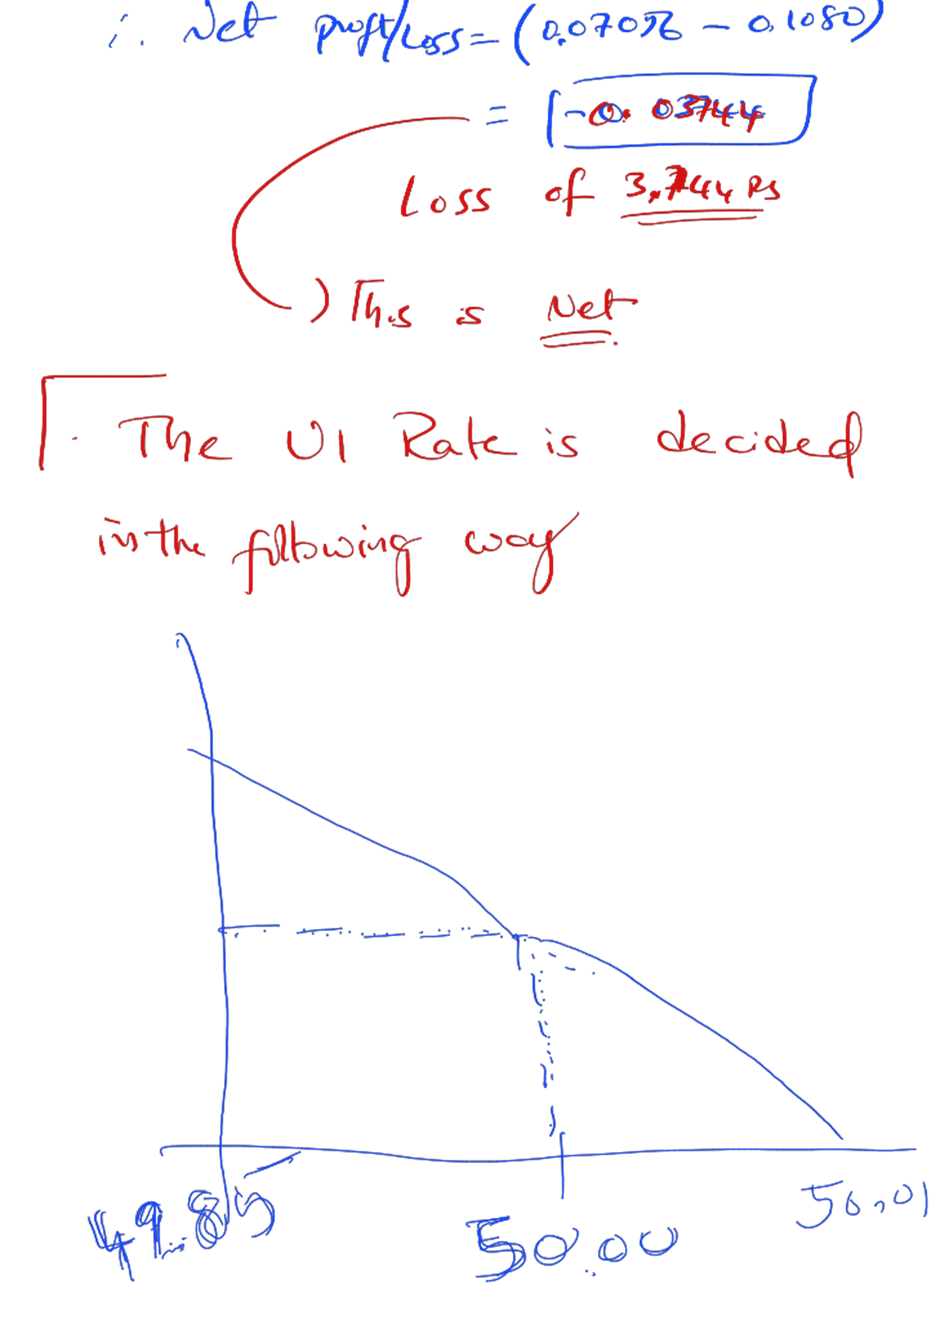 ∴ Net profit/Loss = (0.07056 - 0.1080)
= -0.03744
Loss of 3.744 Rs
) This is Net.
. The UI Rate is decided
in the following way
49.85
50.00
50.01